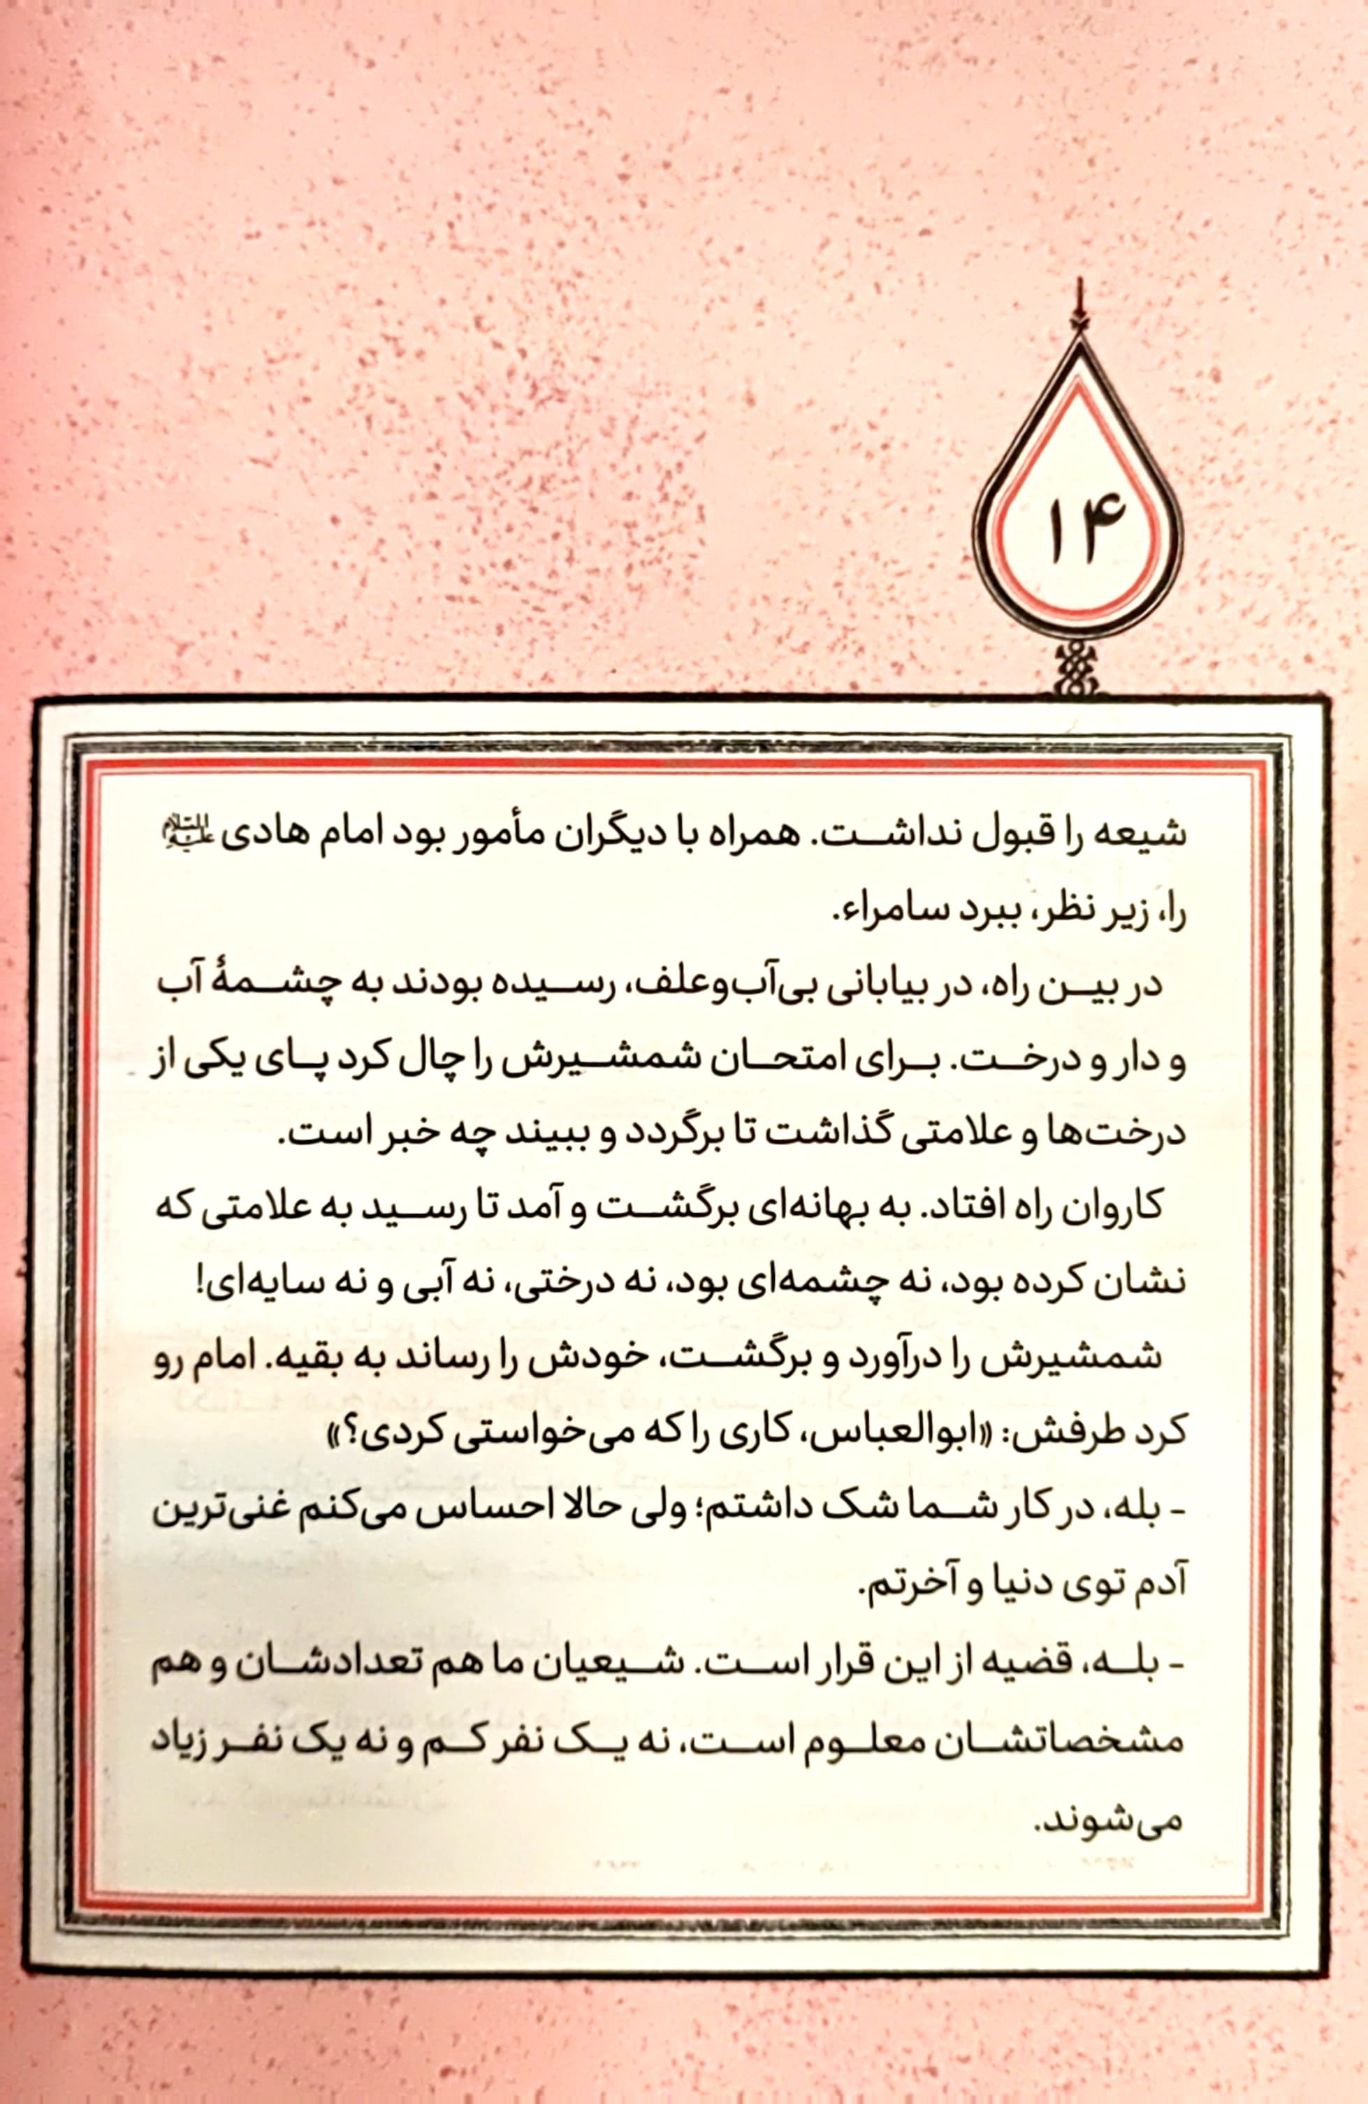 ۱۴
شیعه را قبول نداشت. همراه با دیگران مأمور بود امام هادی علیه‌السلام
را، زیر نظر، ببرد سامراء.
در بین راه، در بیابانی بی‌آب‌وعلف، رسیده بودند به چشمهٔ آب
و دار و درخت. برای امتحان شمشیرش را چال کرد پای یکی از
درخت‌ها و علامتی گذاشت تا برگردد و ببیند چه خبر است.
کاروان راه افتاد. به بهانه‌ای برگشت و آمد تا رسید به علامتی که
نشان کرده بود، نه چشمه‌ای بود، نه درختی، نه آبی و نه سایه‌ای!
شمشیرش را درآورد و برگشت، خودش را رساند به بقیه. امام رو
کرد طرفش: «ابوالعباس، کاری را که می‌خواستی کردی؟»
- بله، در کار شما شک داشتم؛ ولی حالا احساس می‌کنم غنی‌ترین
آدم توی دنیا و آخرتم.
- بله، قضیه از این قرار است. شیعیان ما هم تعدادشان و هم
مشخصاتشان معلوم است، نه یک نفر کم و نه یک نفر زیاد
می‌شوند.